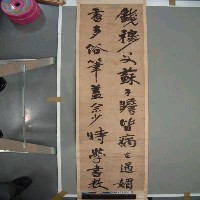 錢穆父蘇子瞻皆病過
書多俗筆蓋余少時學書